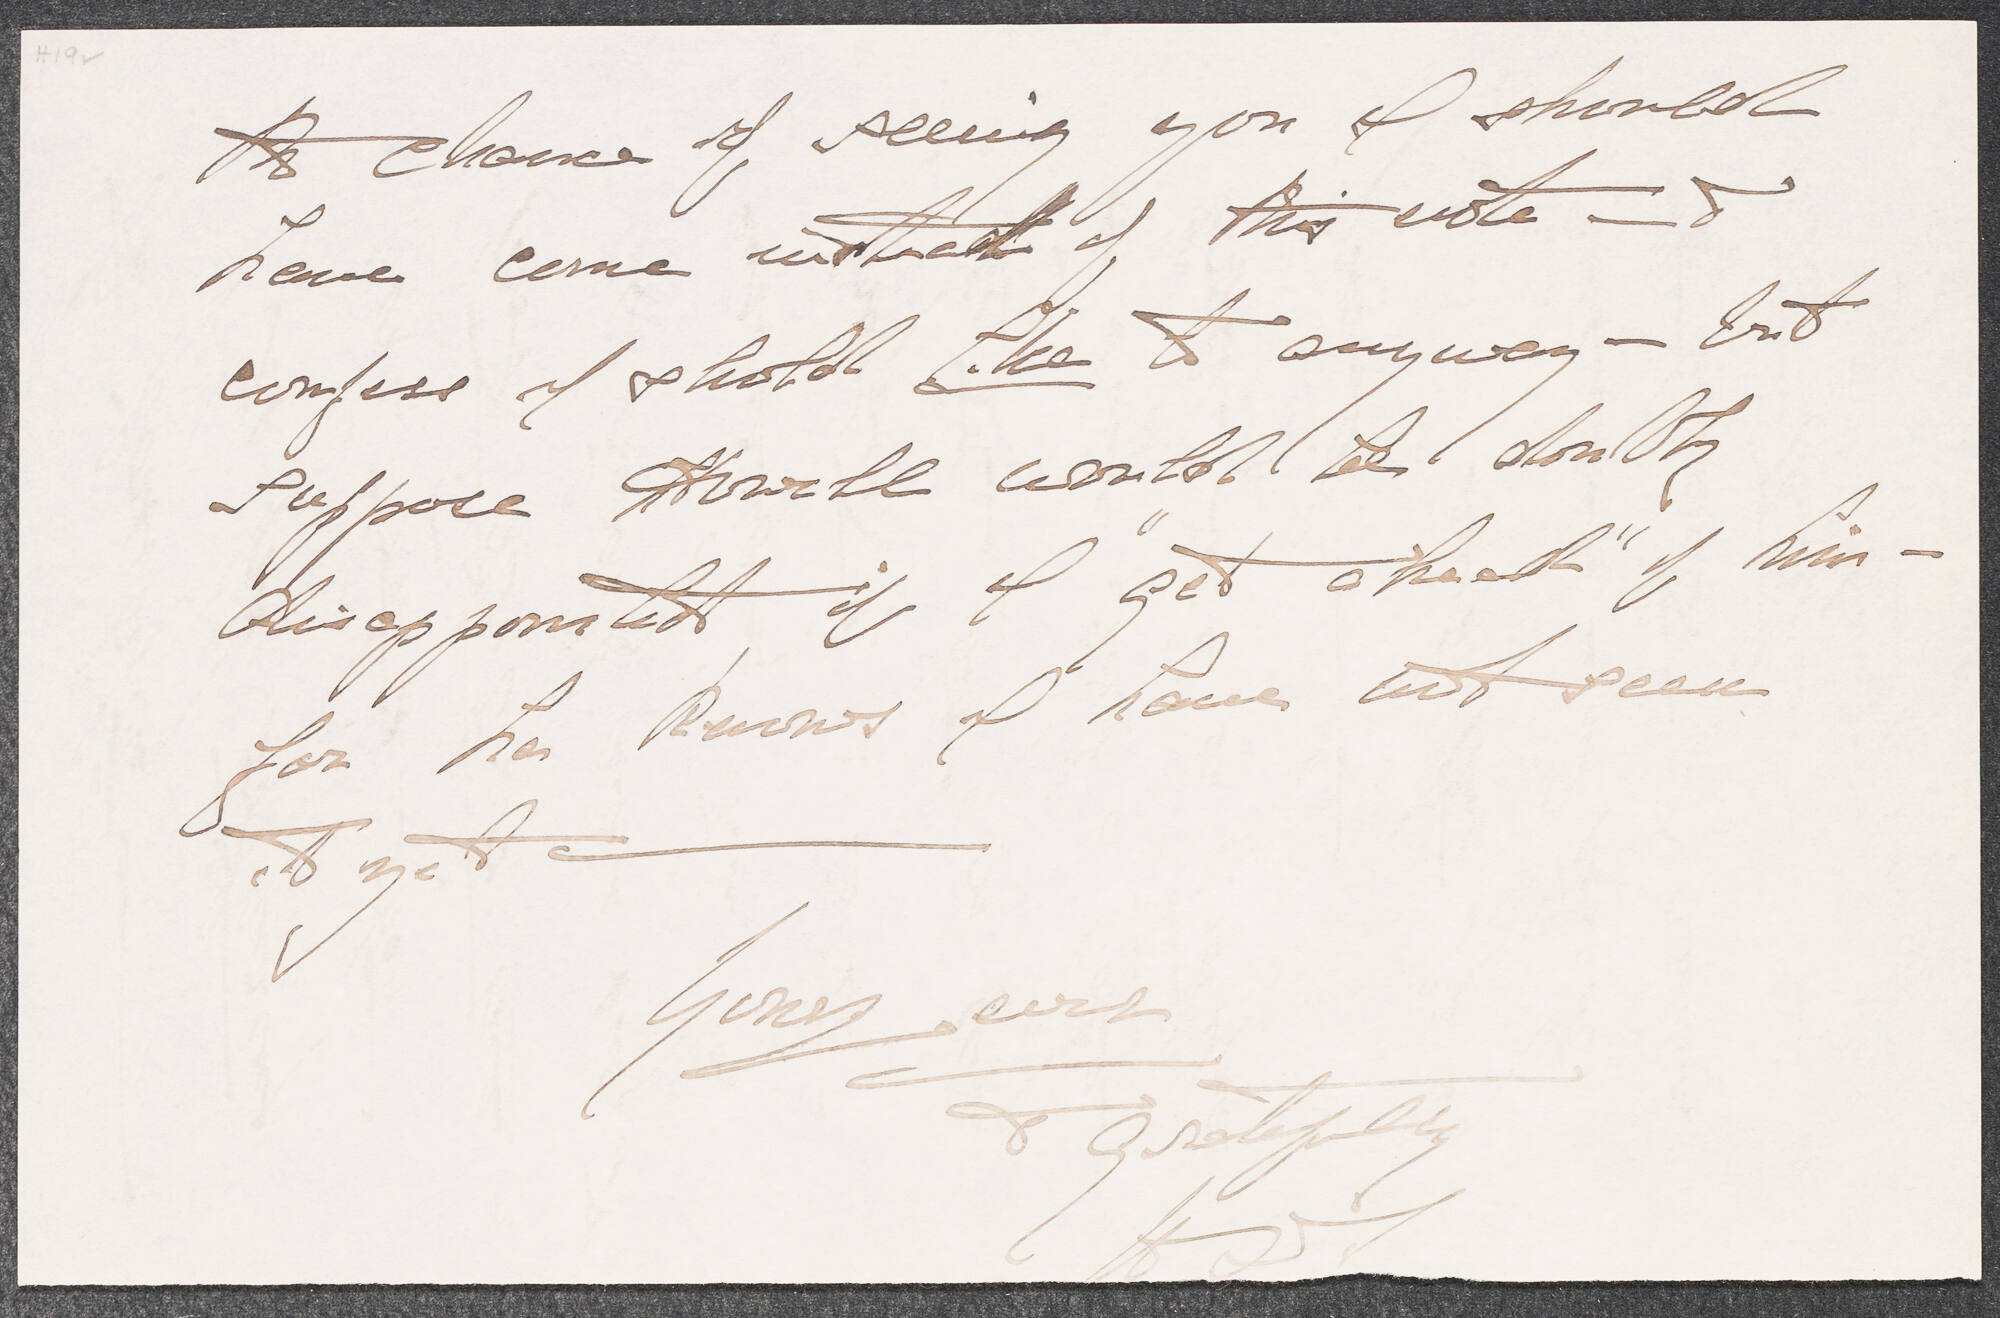 H19v
the chance of seeing you I should
have come instead of this note — &
confess I shold like to anyway — but
suppose Howell would be doubly
disappointed if I "get ahead" of him —
for he knows I have not seen
it yet —
Yours ever
& gratefully